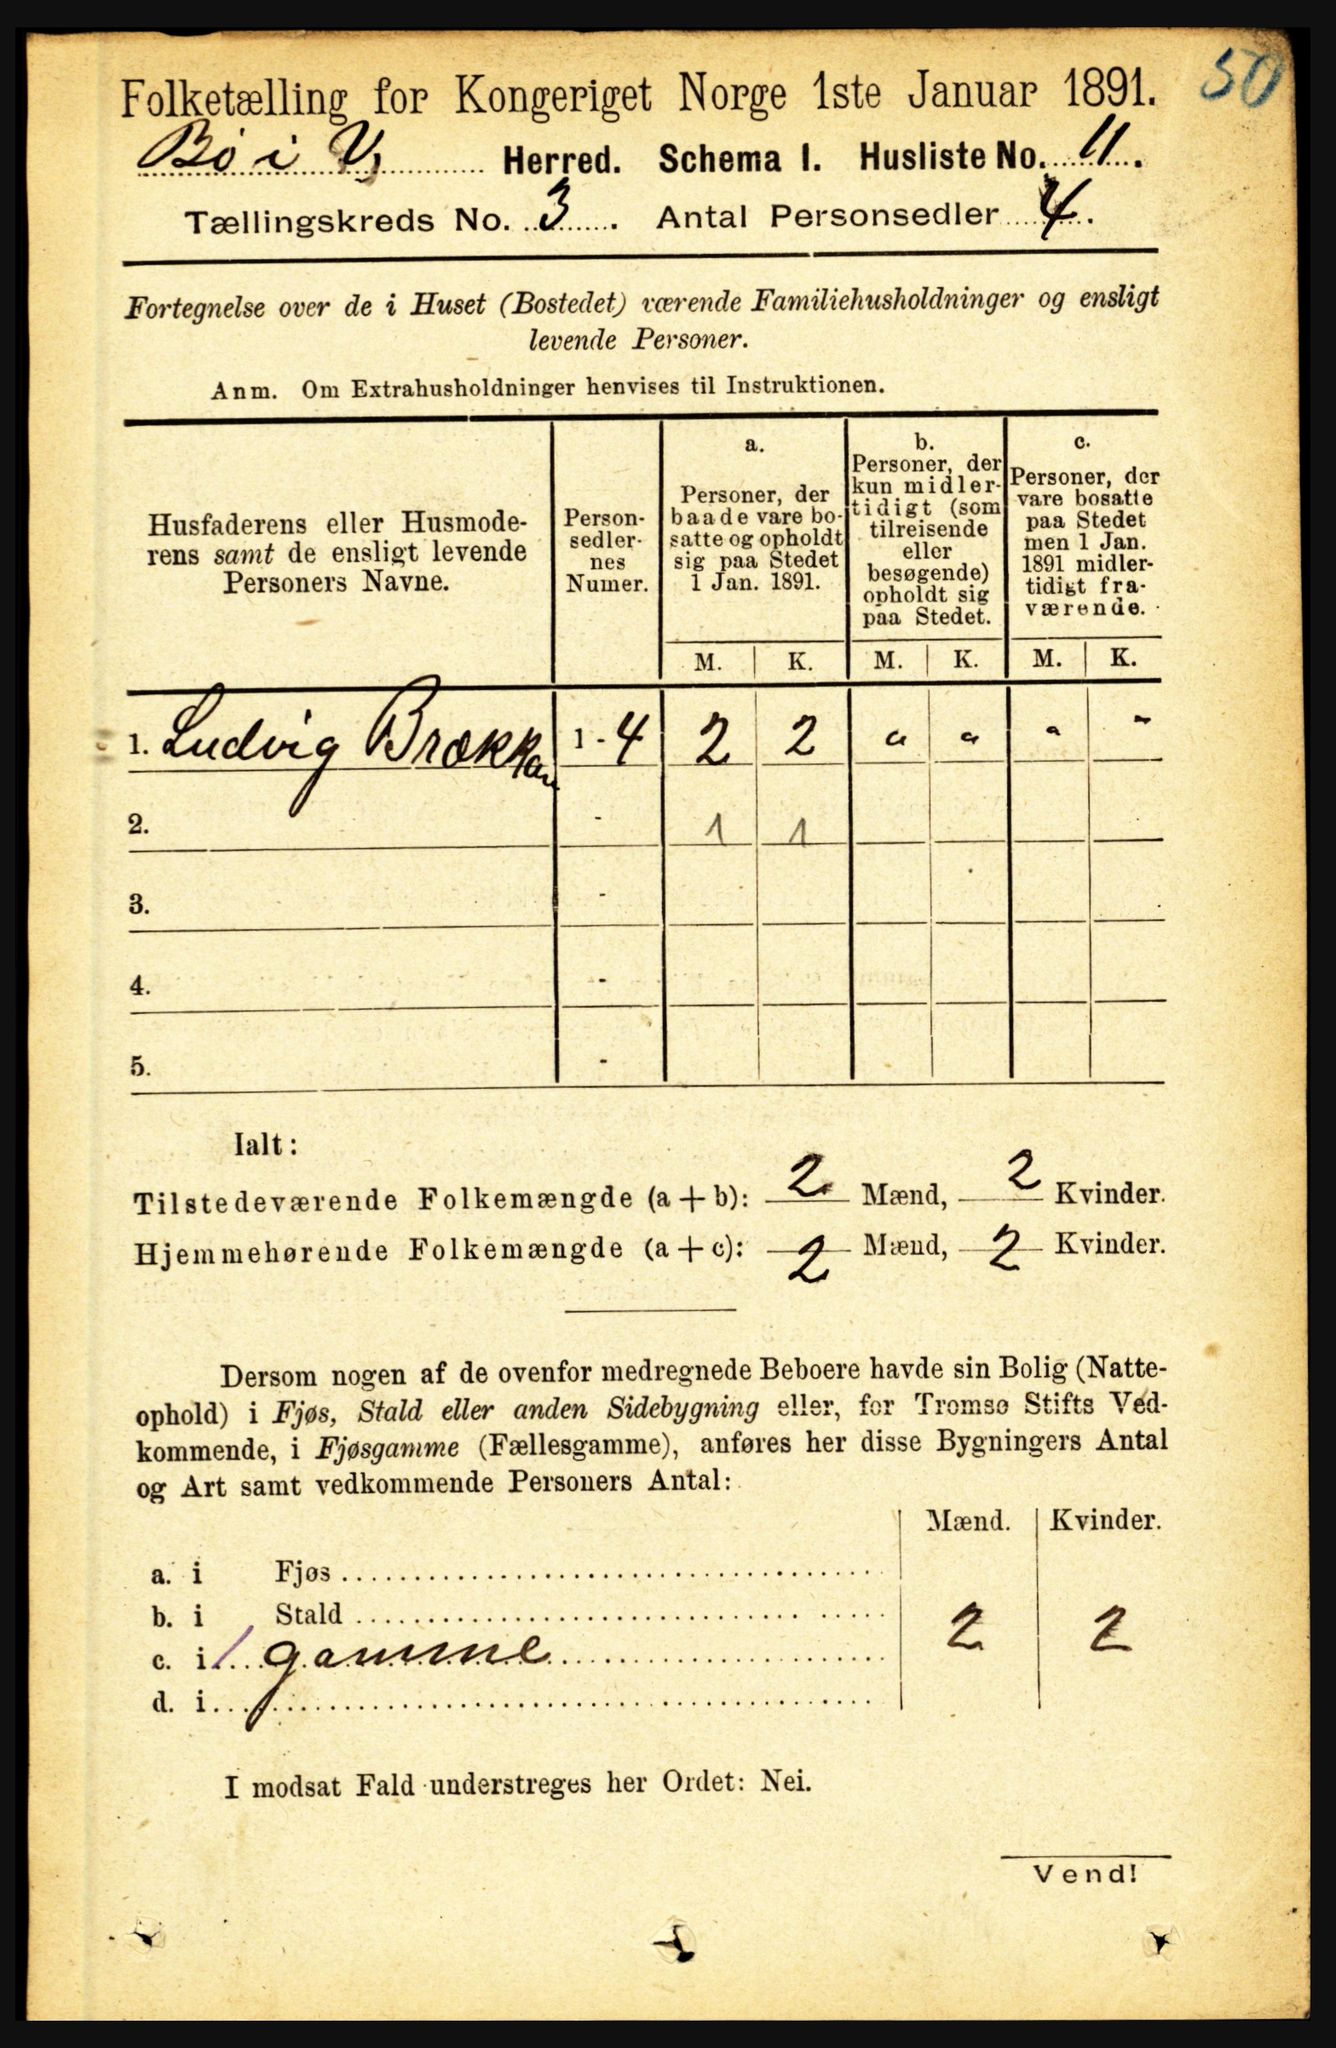 50
Folketælling for Kongeriget Norge 1ste Januar 1891.
Bø i V. Herred. Schema I. Husliste No. 11.
Tællingskreds No. 3. Antal Personsedler 4.
Fortegnelse over de i Huset (Bostedet) værende Familiehusholdninger og ensligt
levende Personer.
Anm. Om Extrahusholdninger henvises til Instruktionen.
Husfaderens eller Husmode-
rens samt de ensligt levende
Personers Navne.
Person-
sedler-
nes
Numer.
a.
Personer, der
baade vare bo-
satte og opholdt
sig paa Stedet
1 Jan. 1891.
b.
Personer, der
kun midler-
tidigt (som
tilreisende
eller
besøgende)
opholdt sig
paa Stedet.
c.
Personer, der
vare bosatte
paa Stedet
men 1 Jan.
1891 midler-
tidigt fra-
værende.
M. K. M. K. M. K.
1. Ludvig Brækkan 1 - 4 2 2 " " " "
2. - 1 1
3. -
4. -
5. -
Ialt:
Tilstedeværende Folkemængde (a + b): 2 Mænd, 2 Kvinder.
Hjemmehørende Folkemængde (a + c): 2 Mænd, 2 Kvinder.
Dersom nogen af de ovenfor medregnede Beboere havde sin Bolig (Natte-
ophold) i Fjøs, Stald eller anden Sidebygning eller, for Tromsø Stifts Ved-
kommende, i Fjøsgamme (Fællesgamme), anføres her disse Bygningers Antal
og Art samt vedkommende Personers Antal:
Mænd. Kvinder.
a. i Fjøs
b. i Stald
c. i 1 gamme 2 2
d. i
I modsat Fald understreges her Ordet: Nei.
Vend!